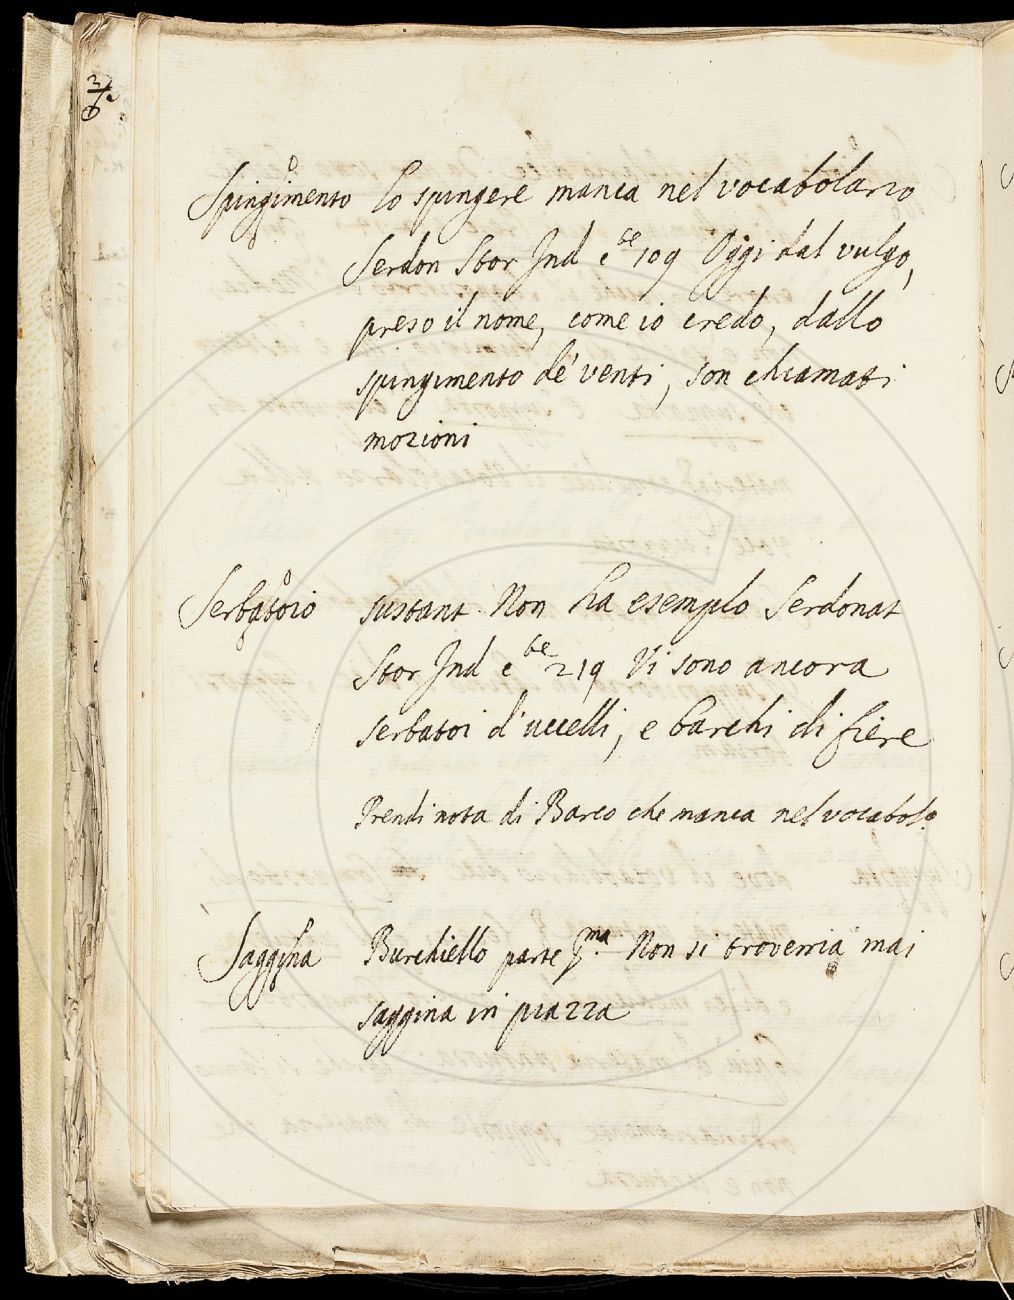 Spingimento Lo spingere manca nel vocabolario
Serdon Stor Ind c te 109 Oggi dal vulgo,
preso il nome, come io credo, dallo
spingimento de' venti, son chiamati
mozioni
Serbatoio sustant Non ha esemplo Serdonat
Stor Ind c te 219 Vi sono ancora
serbatoi d'uccelli, e barchi di fiere
Prendi nota di Barco che manca nel vocabol.o
Saggina Burchiello parte p.ma Non si troverria mai
saggina in piazza